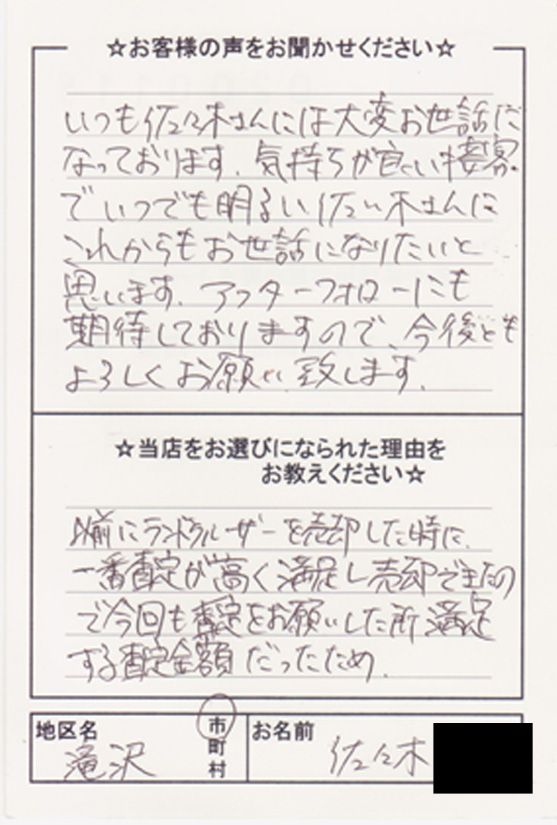 ☆お客様の声をお聞かせください☆
いつも佐々木さんには大変お世話に
なっております。気持ちが良い接客
でいつでも明るい佐々木さんに
これからもお世話になりたいと
思います。アフターフォローにも
期待しておりますので、今後とも
よろしくお願い致します。
☆当店をお選びになられた理由を
お教えください☆
以前にランドクルーザーを売却した時に、
一番査定が高く満足し売却できたの
で今回も査定をお願いした所満足
する査定金額だったため。
地区名 滝沢 市町村
お名前 佐々木